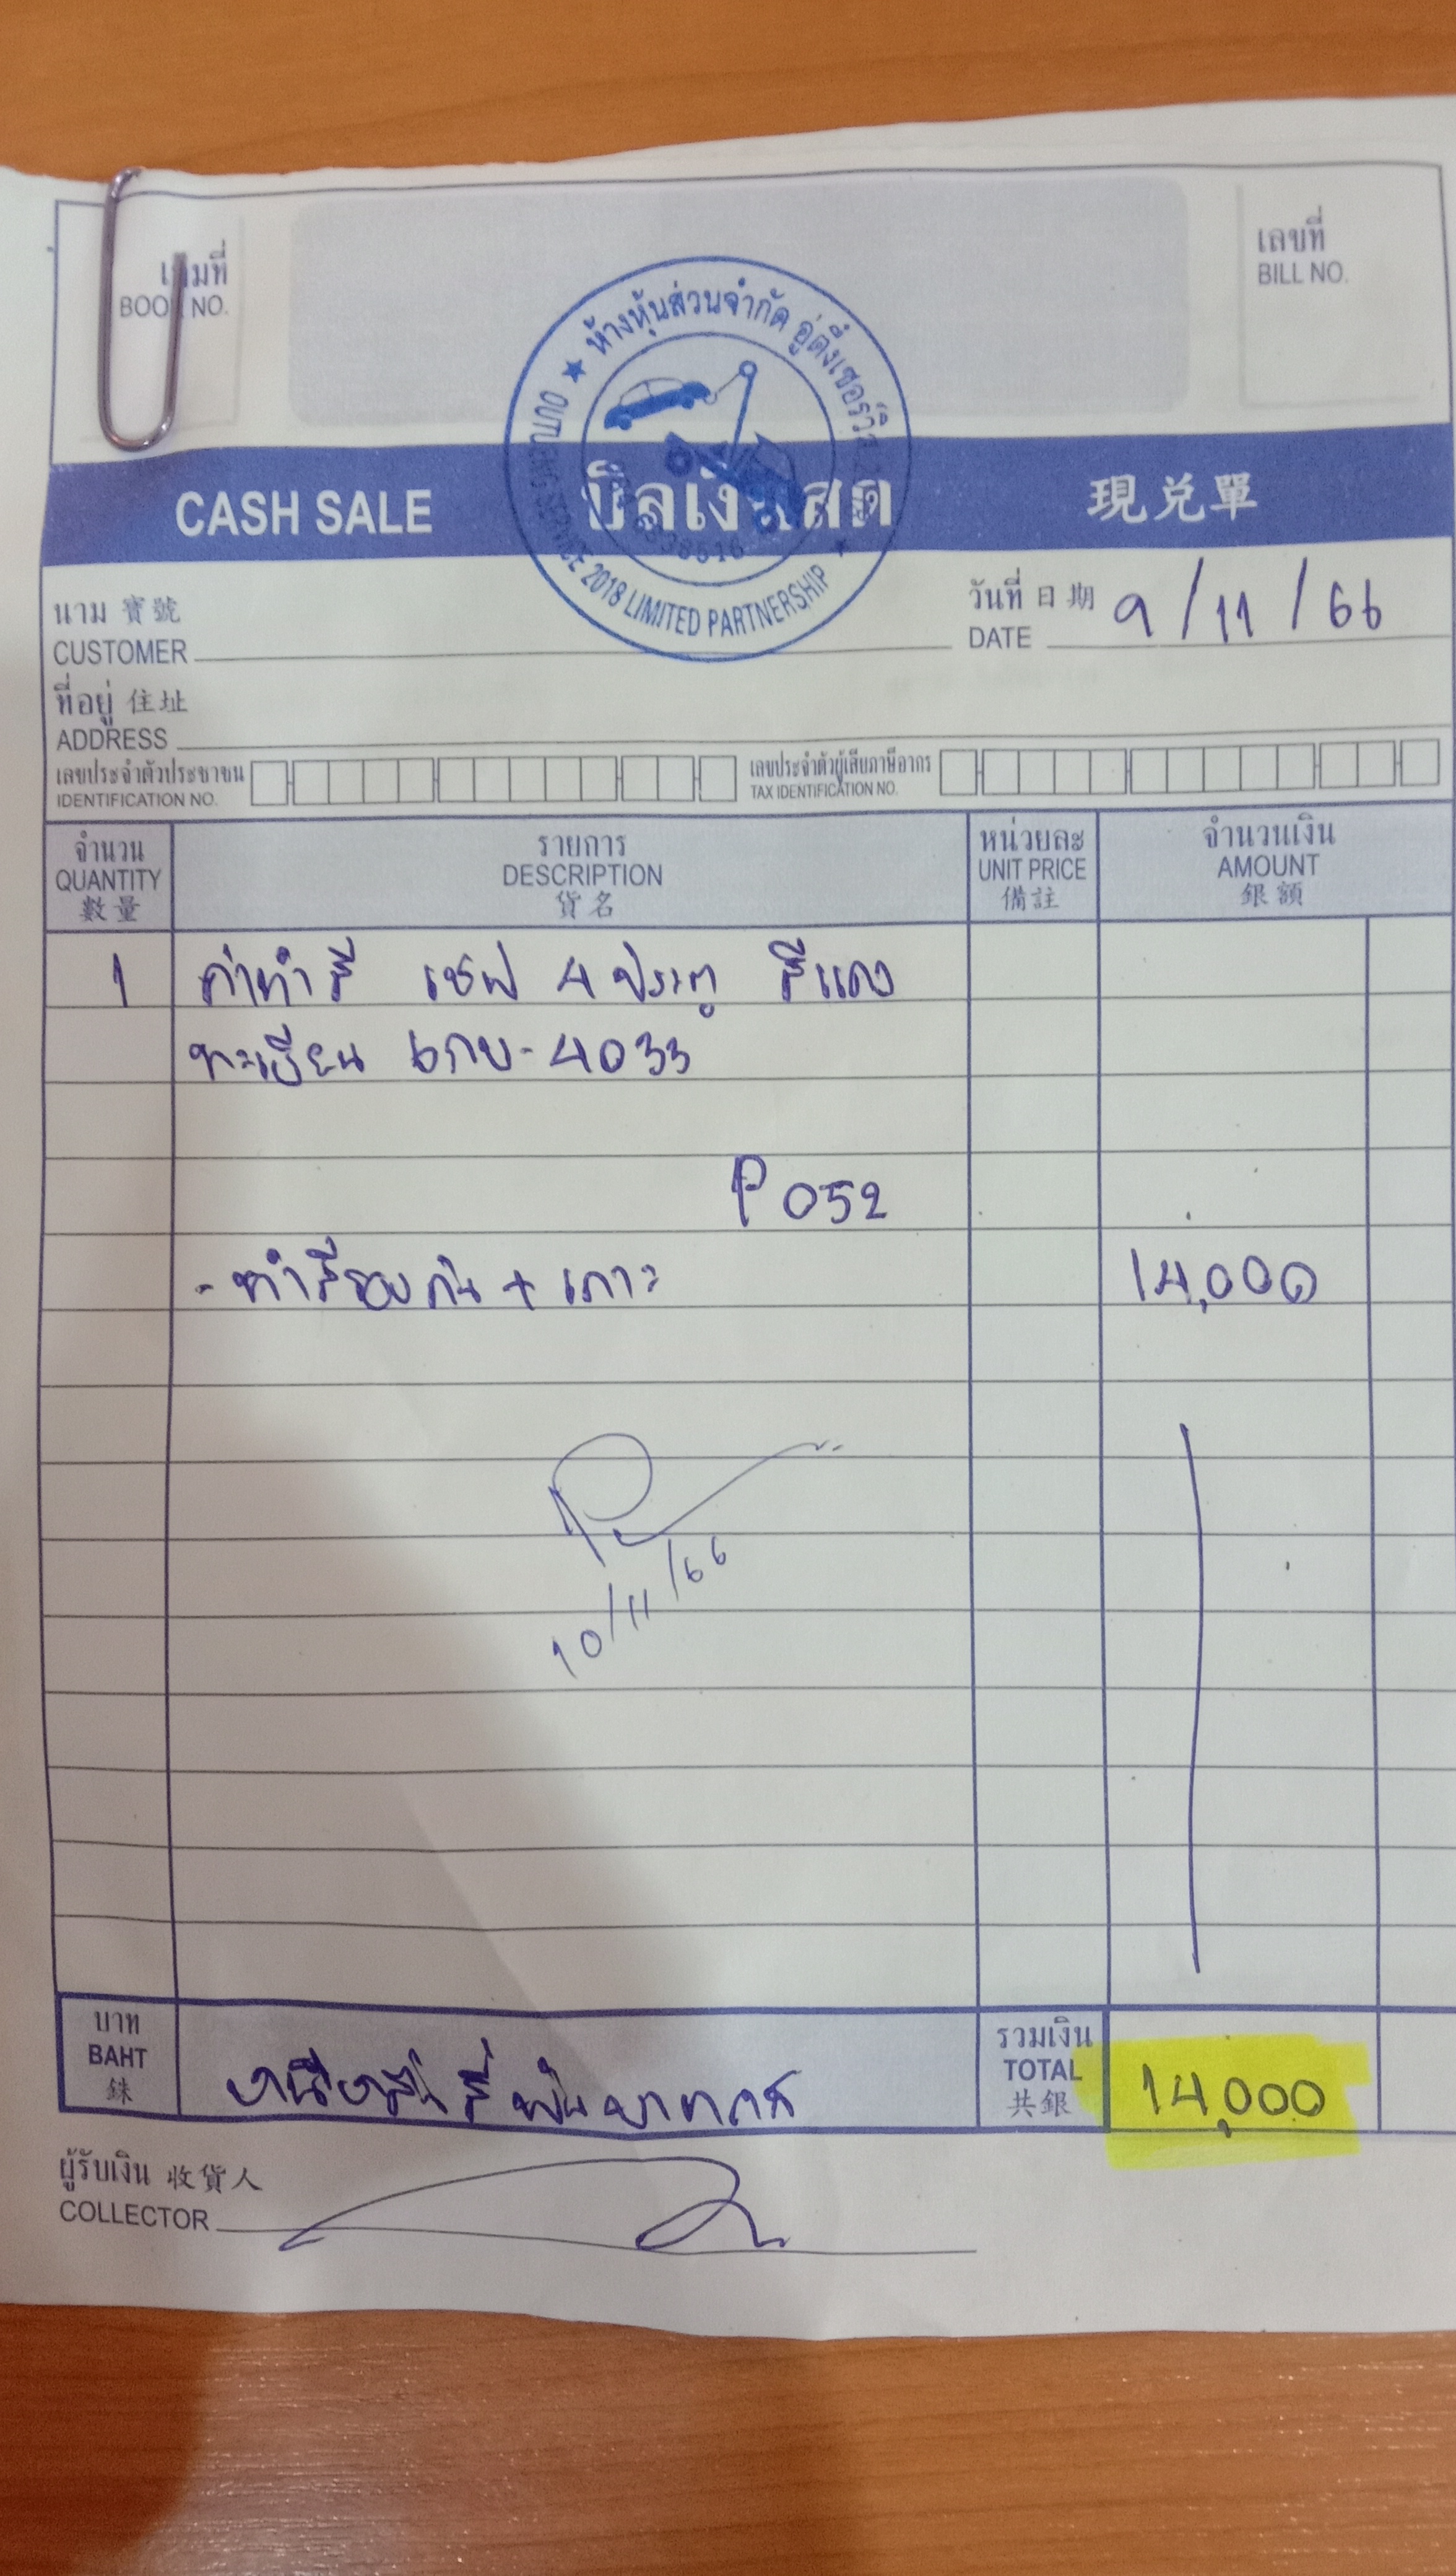 เล่มที่
BOOK NO.
เลขที่
BILL NO.
ห้างหุ้นส่วนจำกัด อู่ตึ๋งเซอร์วิส
SERVICE 2018 LIMITED PARTNERSHIP
CASH SALE บิลเงินสด 現兌單
นาม 寶號
CUSTOMER
วันที่ 日期
DATE 9/11/66
ที่อยู่ 住址
ADDRESS
เลขประจำตัวประชาชน
IDENTIFICATION NO.
เลขประจำตัวผู้เสียภาษีอากร
TAX IDENTIFICATION NO.
จำนวน รายการ หน่วยละ จำนวนเงิน
QUANTITY DESCRIPTION UNIT PRICE AMOUNT
數量 貨名 備註 銀額
1 ค่าทำสี เชฟ 4 ประตู สีแดง
ทะเบียน 6กบ-4033
P 052
- ทำสีรอบคัน + เคาะ 14,000
10/11/66
บาท
BAHT
銖
หนึ่งหมื่นสี่พันบาทถ้วน
รวมเงิน
TOTAL 14,000
共銀
ผู้รับเงิน 收貨人
COLLECTOR